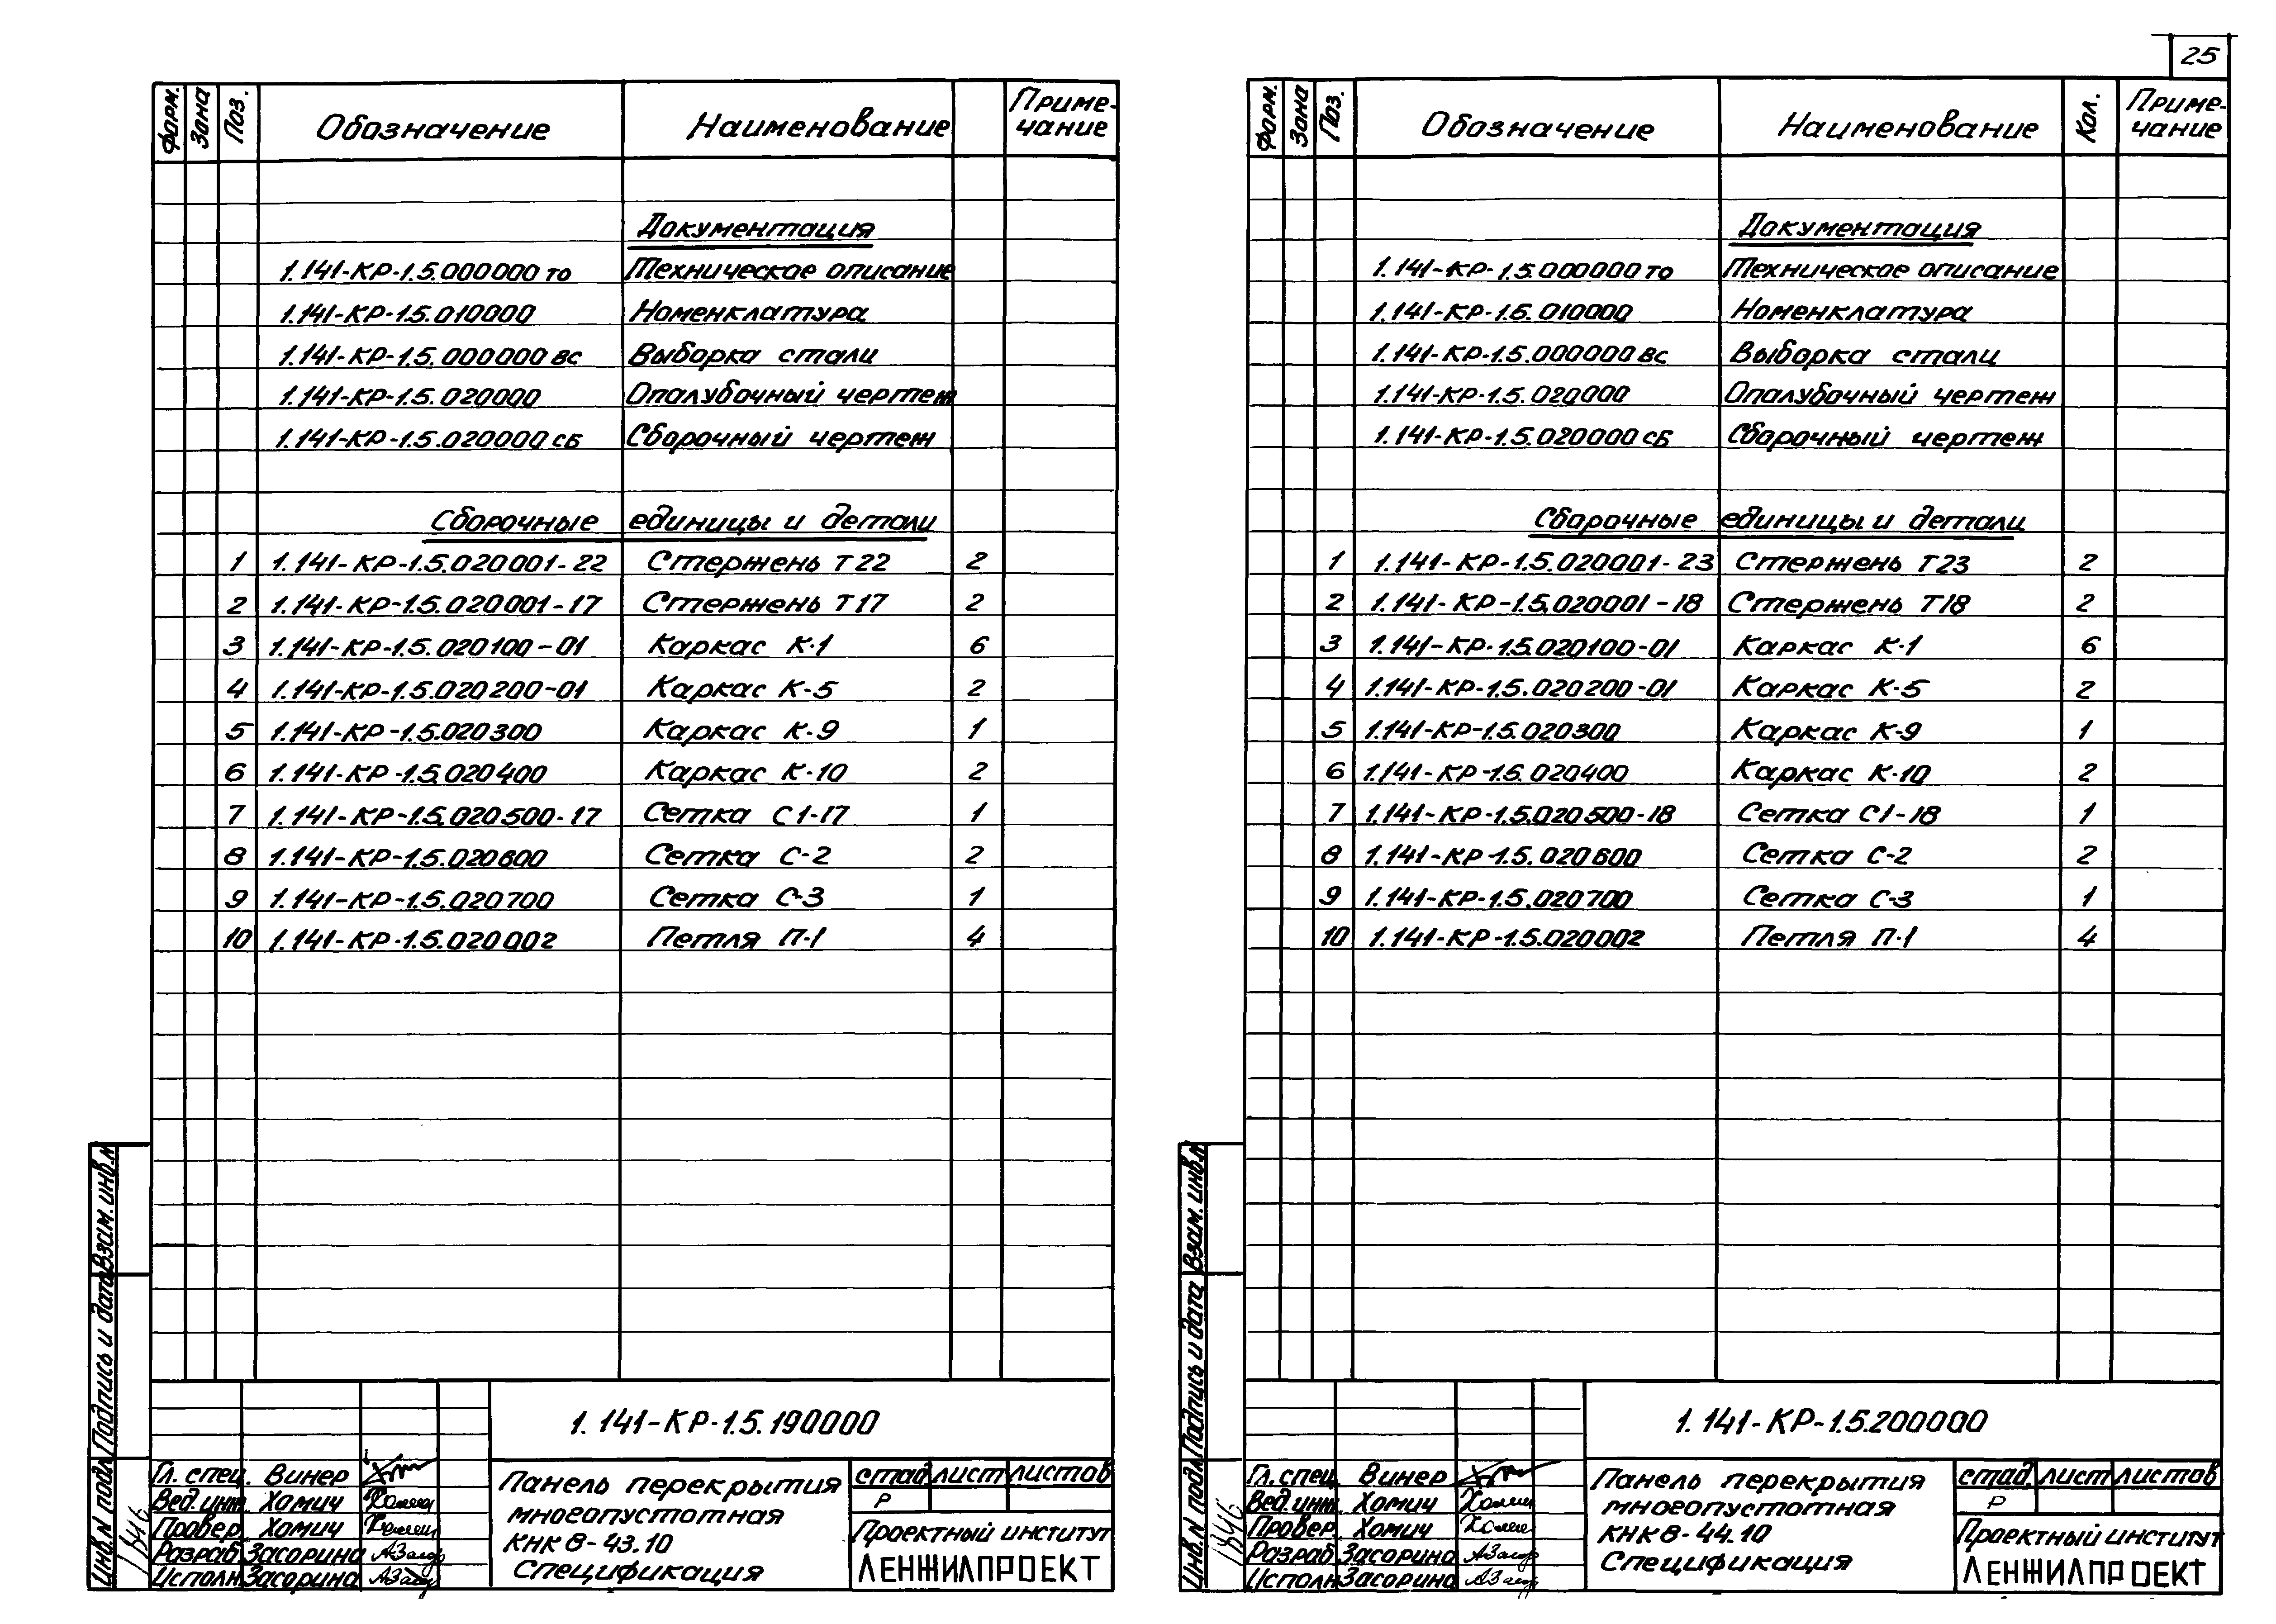 25
Форм. Зона Поз. Обозначение Наименование Приме-
чание
Документация
1.141-КР-1.5.000000 ТО Техническое описание
1.141-КР-1.5.010000 Номенклатура
1.141-КР-1.5.000000 ВС Выборка стали
1.141-КР-1.5.020000 Опалубочный чертеж
1.141-КР-1.5.020000 СБ Сборочный чертеж
Сборочные единицы и детали
1 1.141-КР-1.5.020001-22 Стержень Т22 2
2 1.141-КР-1.5.020001-17 Стержень Т17 2
3 1.141-КР-1.5.020100-01 Каркас К-1 6
4 1.141-КР-1.5.020200-01 Каркас К-5 2
5 1.141-КР-1.5.020300 Каркас К-9 1
6 1.141-КР-1.5.020400 Каркас К-10 2
7 1.141-КР-1.5.020500-17 Сетка С1-17 1
8 1.141-КР-1.5.020600 Сетка С-2 2
9 1.141-КР-1.5.020700 Сетка С-3 1
10 1.141-КР-1.5.020002 Петля П-1 4
Взам. инв. №
Подпись и дата
Инв. № подл.
1.141-КР-1.5.190000
Гл. спец. Винер
Вед. инж. Хомич
Провер. Хомич
Разраб. Засорина
Исполн. Засорина
Панель перекрытия
многопустотная
КНК 8-43.10
Спецификация
стад. лист листов
Р
Проектный институт
ЛЕНЖИЛПРОЕКТ
Форм. Зона Поз. Обозначение Наименование Кол. Приме-
чание
Документация
1.141-КР-1.5.000000 ТО Техническое описание
1.141-КР-1.5.010000 Номенклатура
1.141-КР-1.5.000000 ВС Выборка стали
1.141-КР-1.5.020000 Опалубочный чертеж
1.141-КР-1.5.020000 СБ Сборочный чертеж
Сборочные единицы и детали
1 1.141-КР-1.5.020001-23 Стержень Т23 2
2 1.141-КР-1.5.020001-18 Стержень Т18 2
3 1.141-КР-1.5.020100-01 Каркас К-1 6
4 1.141-КР-1.5.020200-01 Каркас К-5 2
5 1.141-КР-1.5.020300 Каркас К-9 1
6 1.141-КР-1.5.020400 Каркас К-10 2
7 1.141-КР-1.5.020500-18 Сетка С1-18 1
8 1.141-КР-1.5.020600 Сетка С-2 2
9 1.141-КР-1.5.020700 Сетка С-3 1
10 1.141-КР-1.5.020002 Петля П-1 4
Взам. инв. №
Подпись и дата
Инв. № подл.
1.141-КР-1.5.200000
Гл. спец. Винер
Вед. инж. Хомич
Провер. Хомич
Разраб. Засорина
Исполн. Засорина
Панель перекрытия
многопустотная
КНК 8-44.10
Спецификация
стад. лист листов
Р
Проектный институт
ЛЕНЖИЛПРОЕКТ